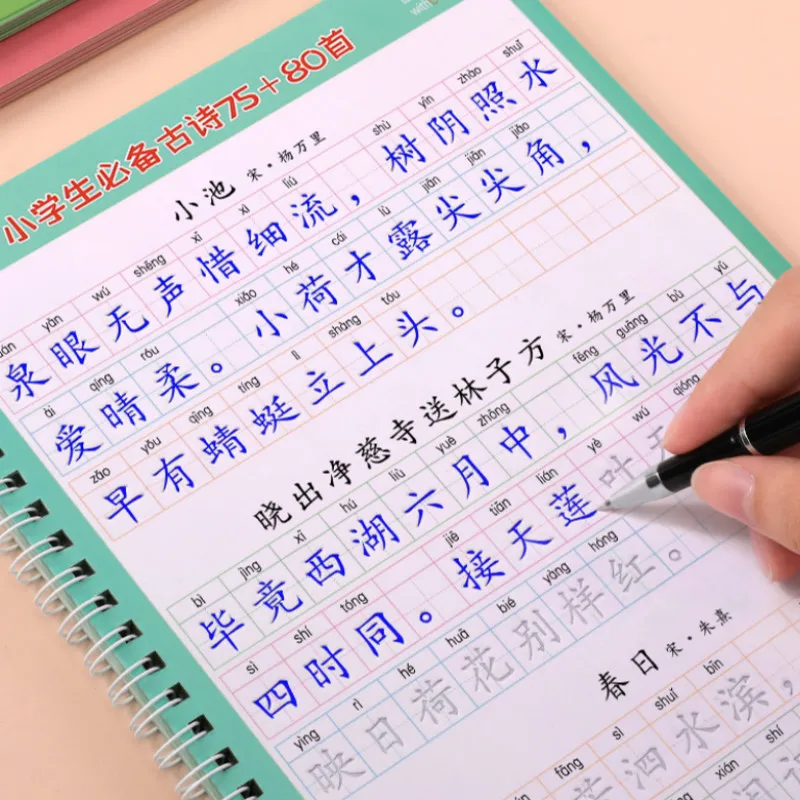 with
小学生必备古诗75+80首
小池 宋·杨万里
uán yǎn wú shēng xī xì liú shù yīn zhào shuǐ
泉眼无声惜细流，树阴照水
ài qíng róu xiǎo hé cái lù jiān jiān jiǎo
爱晴柔。小荷才露尖尖角，
zǎo yǒu qīng tíng lì shàng tóu
早有蜻蜓立上头。
晓出净慈寺送林子方 宋·杨万里
bì jìng xī hú liù yuè zhōng fēng guāng bù yǔ
毕竟西湖六月中，风光不与
sì shí tóng jiē tiān lián yè wú qióng
四时同。接天莲叶无
yìng rì hé huā bié yàng hóng
映日荷花别样红。
春日 宋·朱熹
fāng sì shuǐ bīn
泗水滨，
xián shí